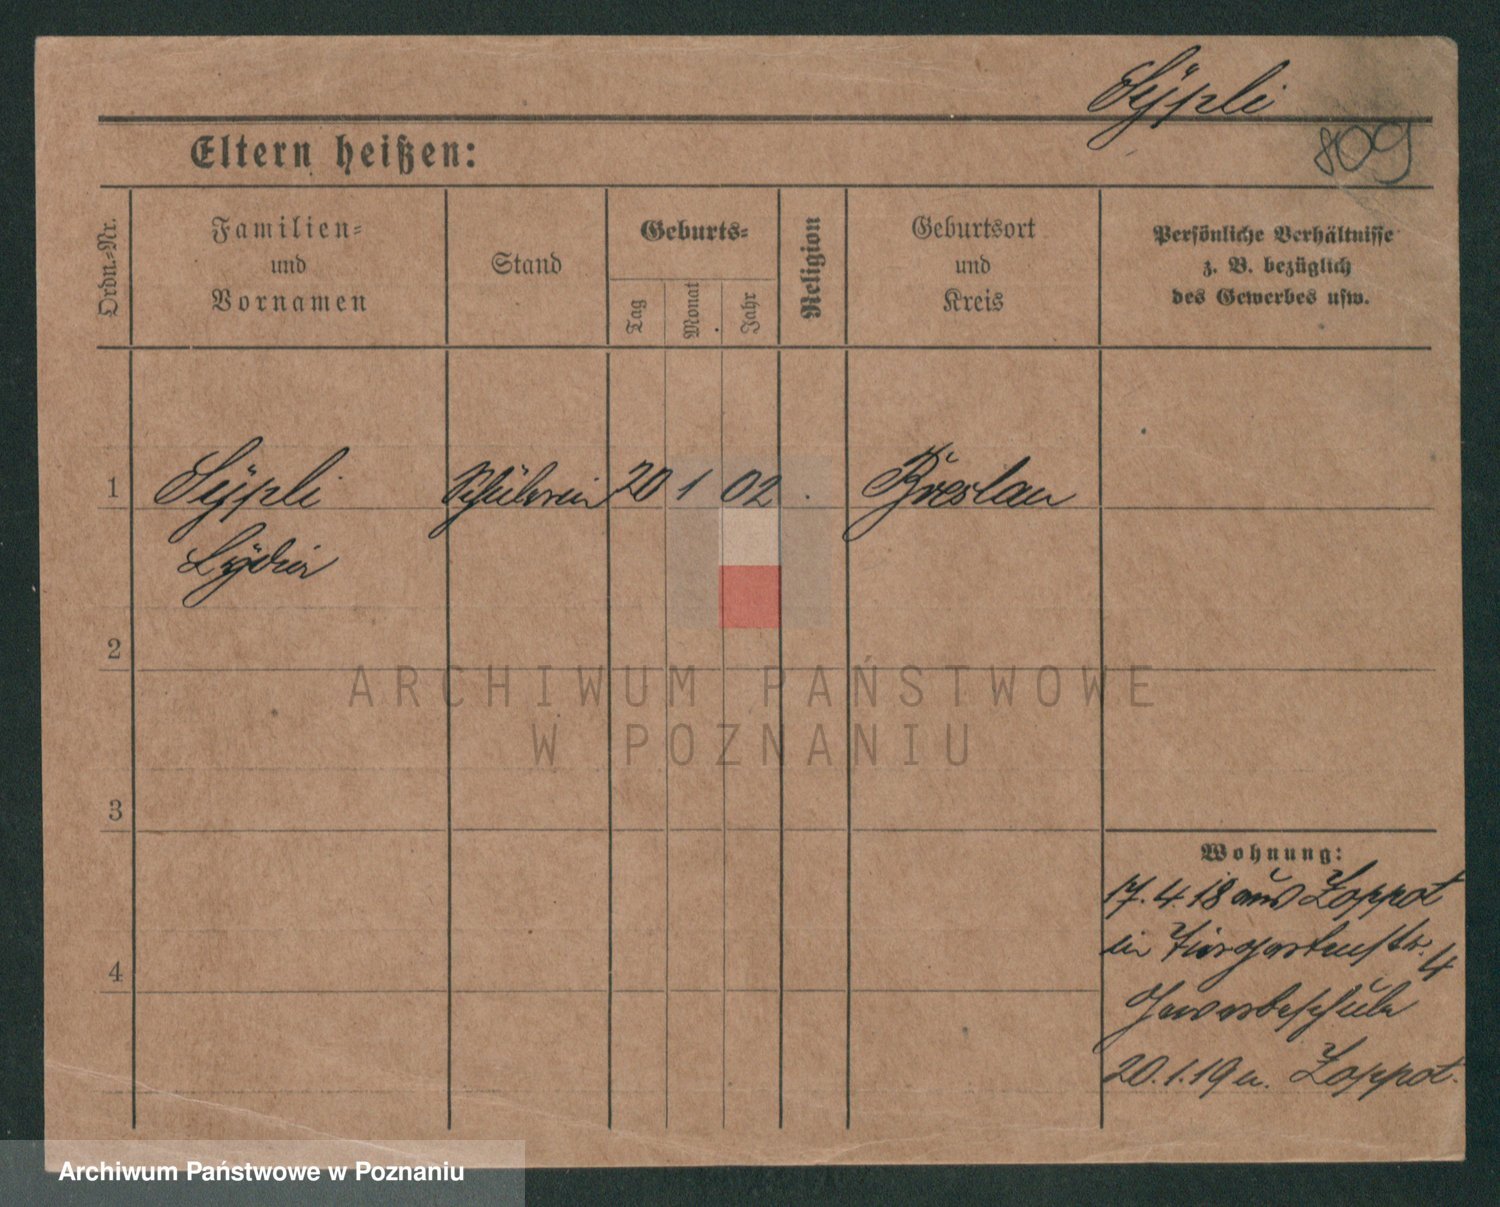 Sÿpli
809
Eltern heißen:
Ordn.-Nr.
Familien-
und
Vornamen
Stand
Geburts-
Tag
Monat
Jahr
Religion
Geburtsort
und
Kreis
Persönliche Verhältnisse
z. B. bezüglich
des Gewerbes usw.
1 Sÿpli Schülerin 20 1 02 Breslau
Lÿdia
2
ARCHIWUM PAŃSTWOWE
W POZNANIU
3
Wohnung:
17.4.18 aus Zoppot
in Tiergartenstr. 4
4
Gewerbeschule
20.1.19 n. Zoppot.
Archiwum Państwowe w Poznaniu